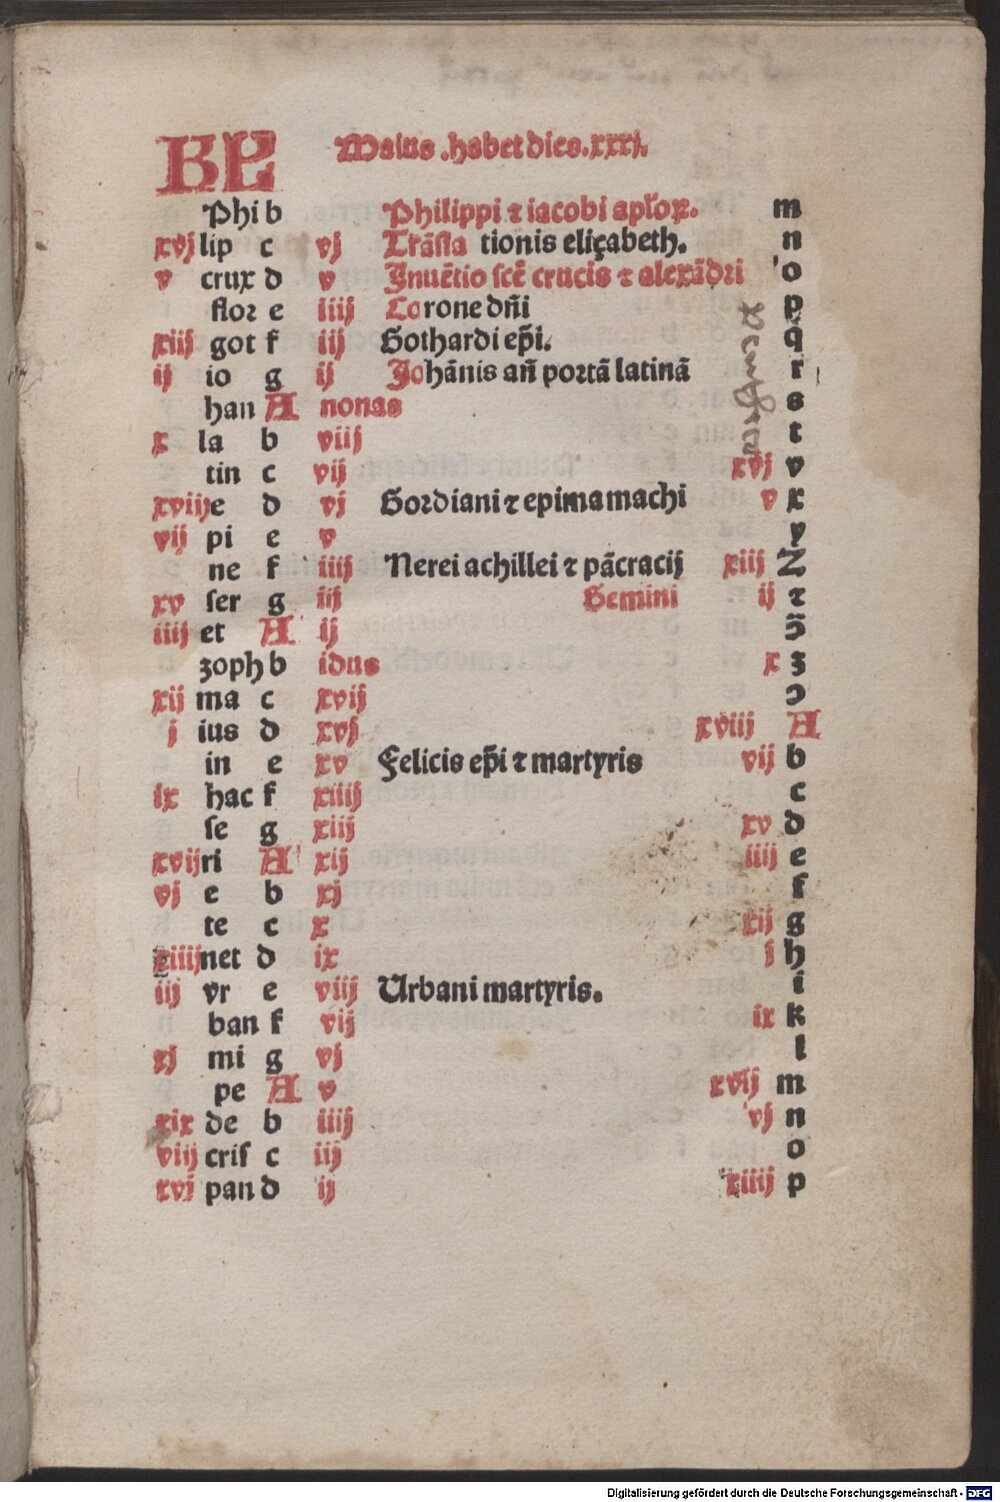 KL Maius .habet dies.xxxj.
Phi b Philippi ⁊ iacobi apl'oꝝ. m
xvj lip c vj Trāsla tionis eliçabeth. n
v crux d v Inuētio scē crucis ⁊ alexādri o
flor e iiij Corone dn̄i p
xiij got f iij Gothardi ep̄i. q
ij io g ij Johānis an̄ portā latinā r
han A nonas s
x la b viij t
tin c vij xvj v
xviij e d vj Gordiani ⁊ epima machi v x
vij pi e v y
ne f iiij Nerei achillei ⁊ pācracij xiij z
xv ser g iij Gemini ij ⁊
iiij et A ij ↄ̄
zoph b idus x ꝫ
xij ma c xvij ↄ
j ius d xvj xviij A
in e xv Felicis ep̄i ⁊ martyris vij b
ix hac f xiiij c
se g xiij xv d
xvij ri A xij iiij e
vj e b xj f
te c x xij g
xiiij net d ix j h
iij vr e viij Urbani martyris. i
ban f vij ix k
xj mi g vj l
pe A v xvij m
xix de b iiij vj n
viij cris c iij o
xvj pan d ij xiiij p
Digitalisierung gefördert durch die Deutsche Forschungsgemeinschaft - DFG